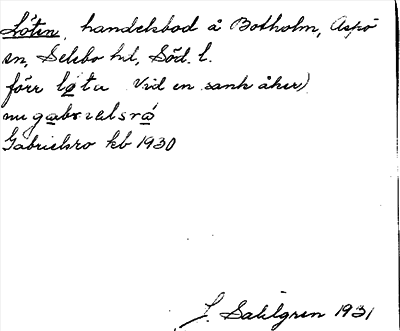 Löten, handelsbod å Botholm, Aspö
sn, Selebo hd, Söd. l.
förr lø̱tu (vid en sank åker)
nu ga̱brıelsrá̱
Gabrielsro kb 1930
J. Sahlgren 1931